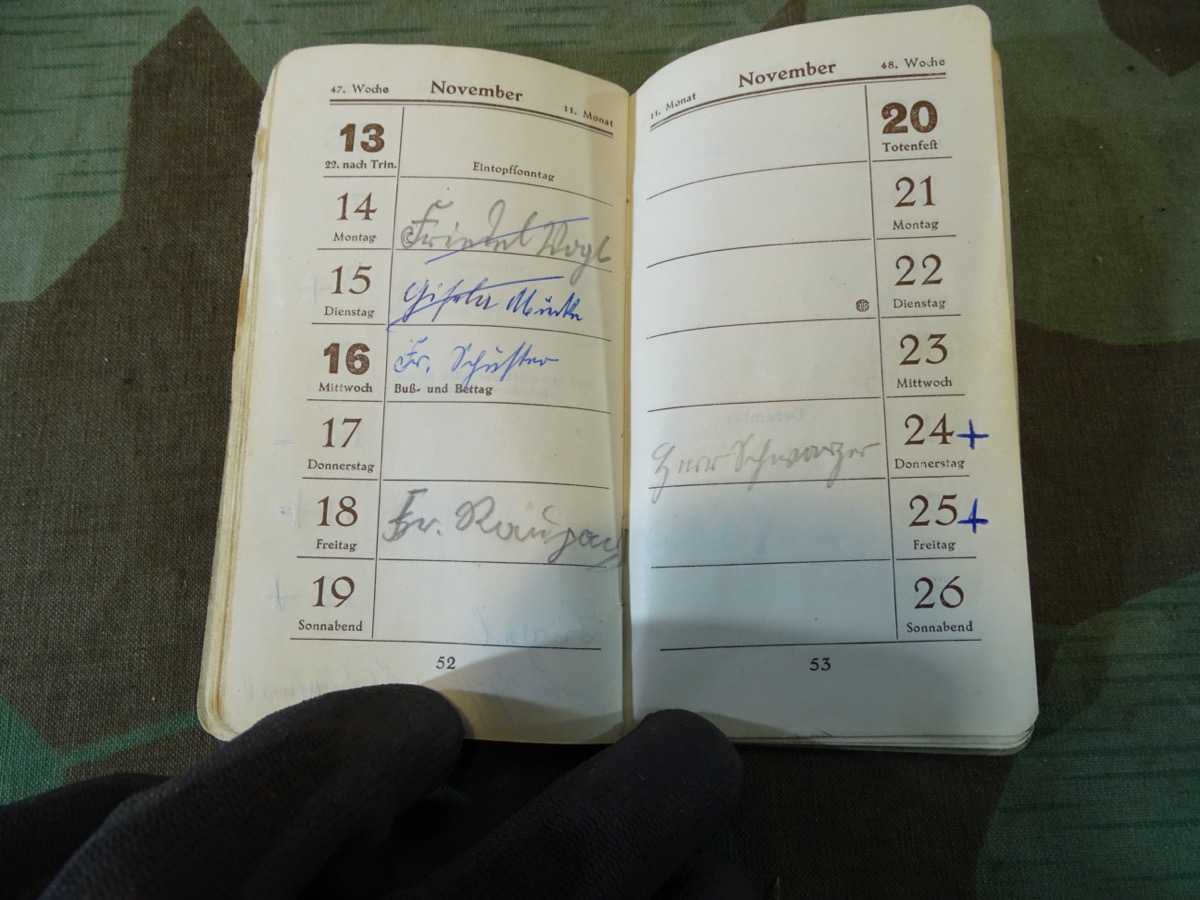 47. Woche November 11. Monat
13
22. nach Trin.
Eintopfsonntag
14
Montag
Friedel Vogl
15
Dienstag
Gisela
16
Mittwoch
Fr. Schuster
Buß- und Bettag
17
Donnerstag
18
Freitag
Fr.
19
Sonnabend
52
11. Monat November 48. Woche
20
Totenfest
21
Montag
22
Dienstag
23
Mittwoch
24 +
Donnerstag
Herr Schwarzer
25 +
Freitag
26
Sonnabend
53